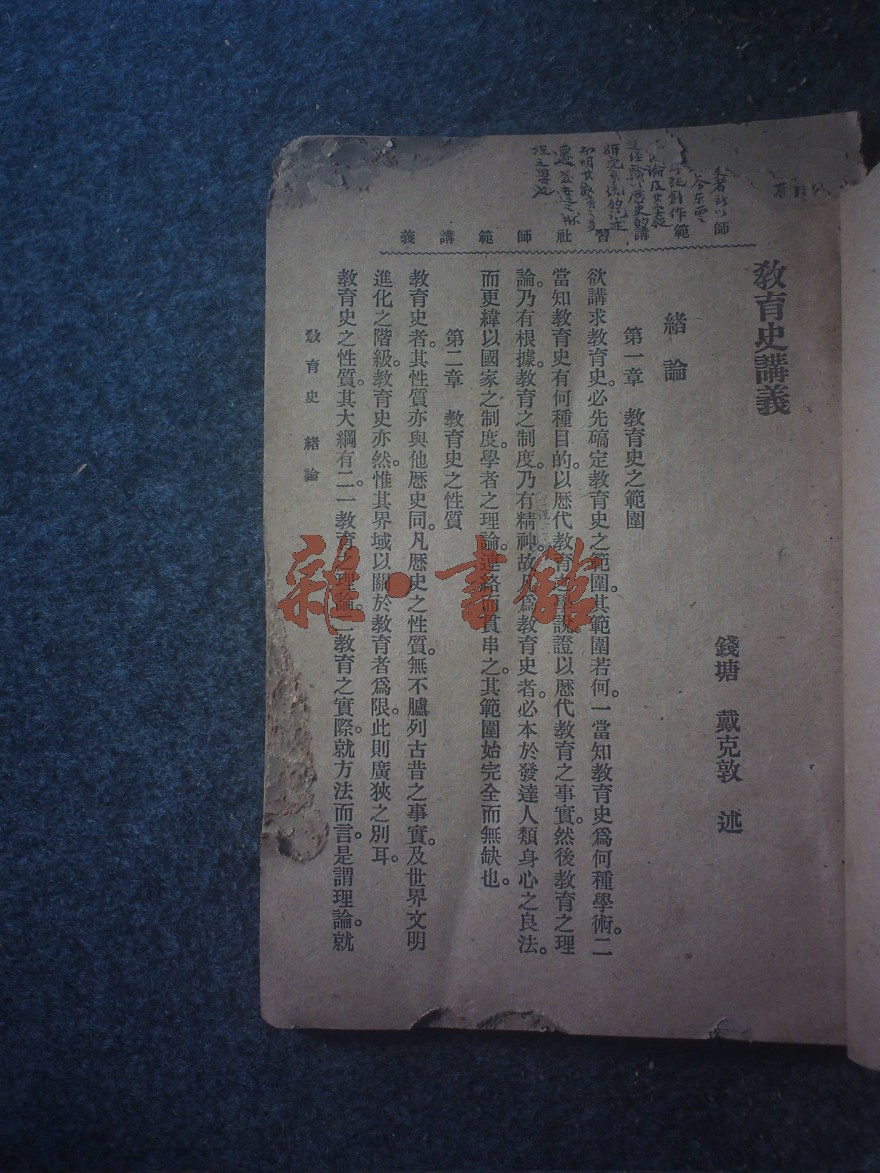 師範講習社師範講義
教育史講義
錢塘　戴克敦　述
緒論
第一章　教育史之範圍
欲講求教育史。必先碻定教育史之範圍。其範圍若何。一當知教育史爲何種學術。二
當知教育史有何種目的。以歷代教育之學說。證以歷代教育之事實。然後教育之理
論。乃有根據。教育之制度。乃有精神。故凡爲教育史者。必本於發達人類身心之良法。
而更緯以國家之制度。學者之理論。連絡而貫串之。其範圍始完全而無缺也。
第二章　教育史之性質
教育史者。其性質亦與他歷史同。凡歷史之性質。無不臚列古昔之事實。及世界文明
進化之階級。教育史亦然。惟其界域以關於教育者爲限。此則廣狹之別耳。
教育史之性質。其大綱有二。一教育之理論。二教育之實際。就方法而言。是謂理論。就
教育史　緒論
雜·書館